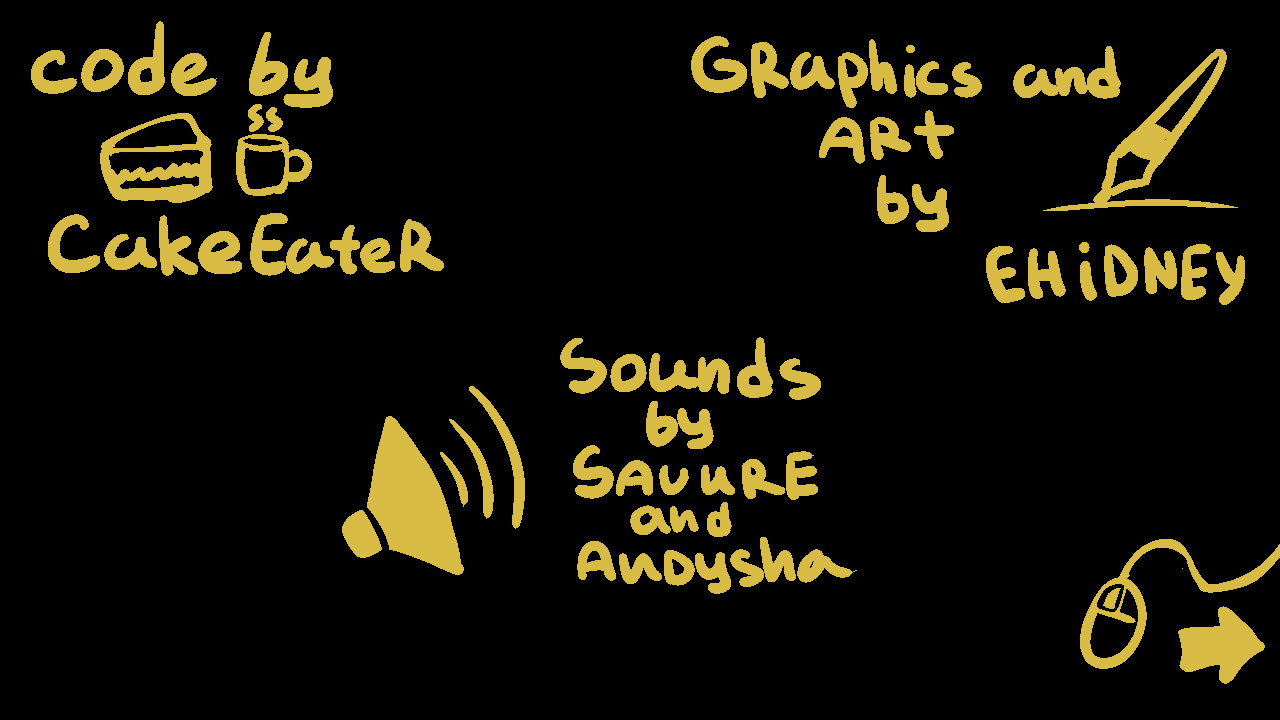 code by
CakeEateR
GRaphics and
ARt
by
EHiDNEY
Sounds
by
SAuuRE
and
AnDysha